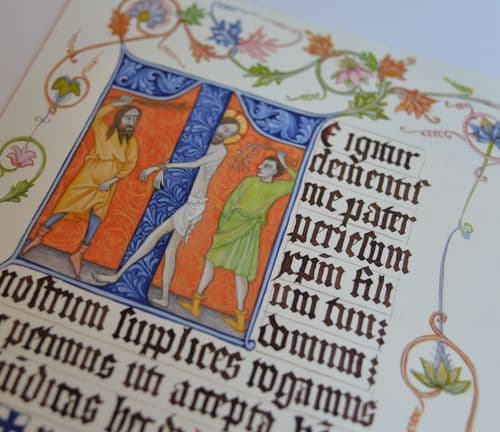 E igitur
clementiſ
me pater
per ieſum
xpm fili
um tuu:
dominum:
noſtrum ſupplices rogamus
petimus uti accepta
nidicas hec